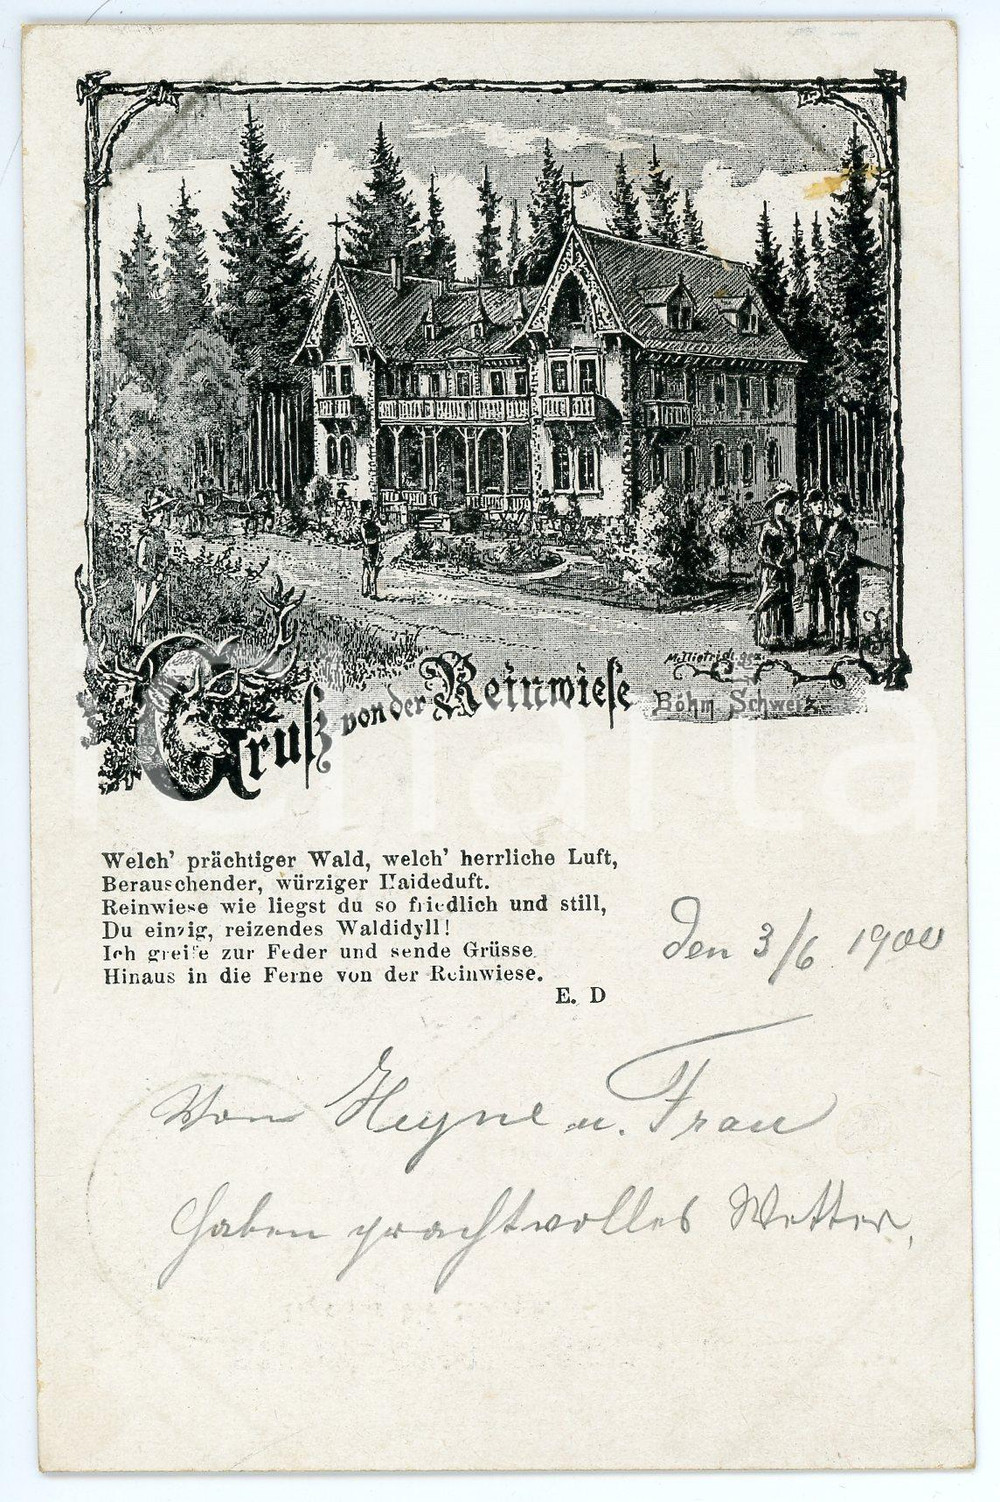 M. Dietrich gez.
Gruß von der Reinwiese Böhm Schweiz
Welch' prächtiger Wald, welch' herrliche Luft,
Berauschender, würziger Haideduft.
Reinwiese wie liegst du so friedlich und still,
Du einzig, reizendes Waldidyll!
Ich greife zur Feder und sende Grüsse
Hinaus in die Ferne von der Reinwiese.
E. D
den 3/6 1900
Von Heyne u. Frau
haben prachtvolles Wetter,